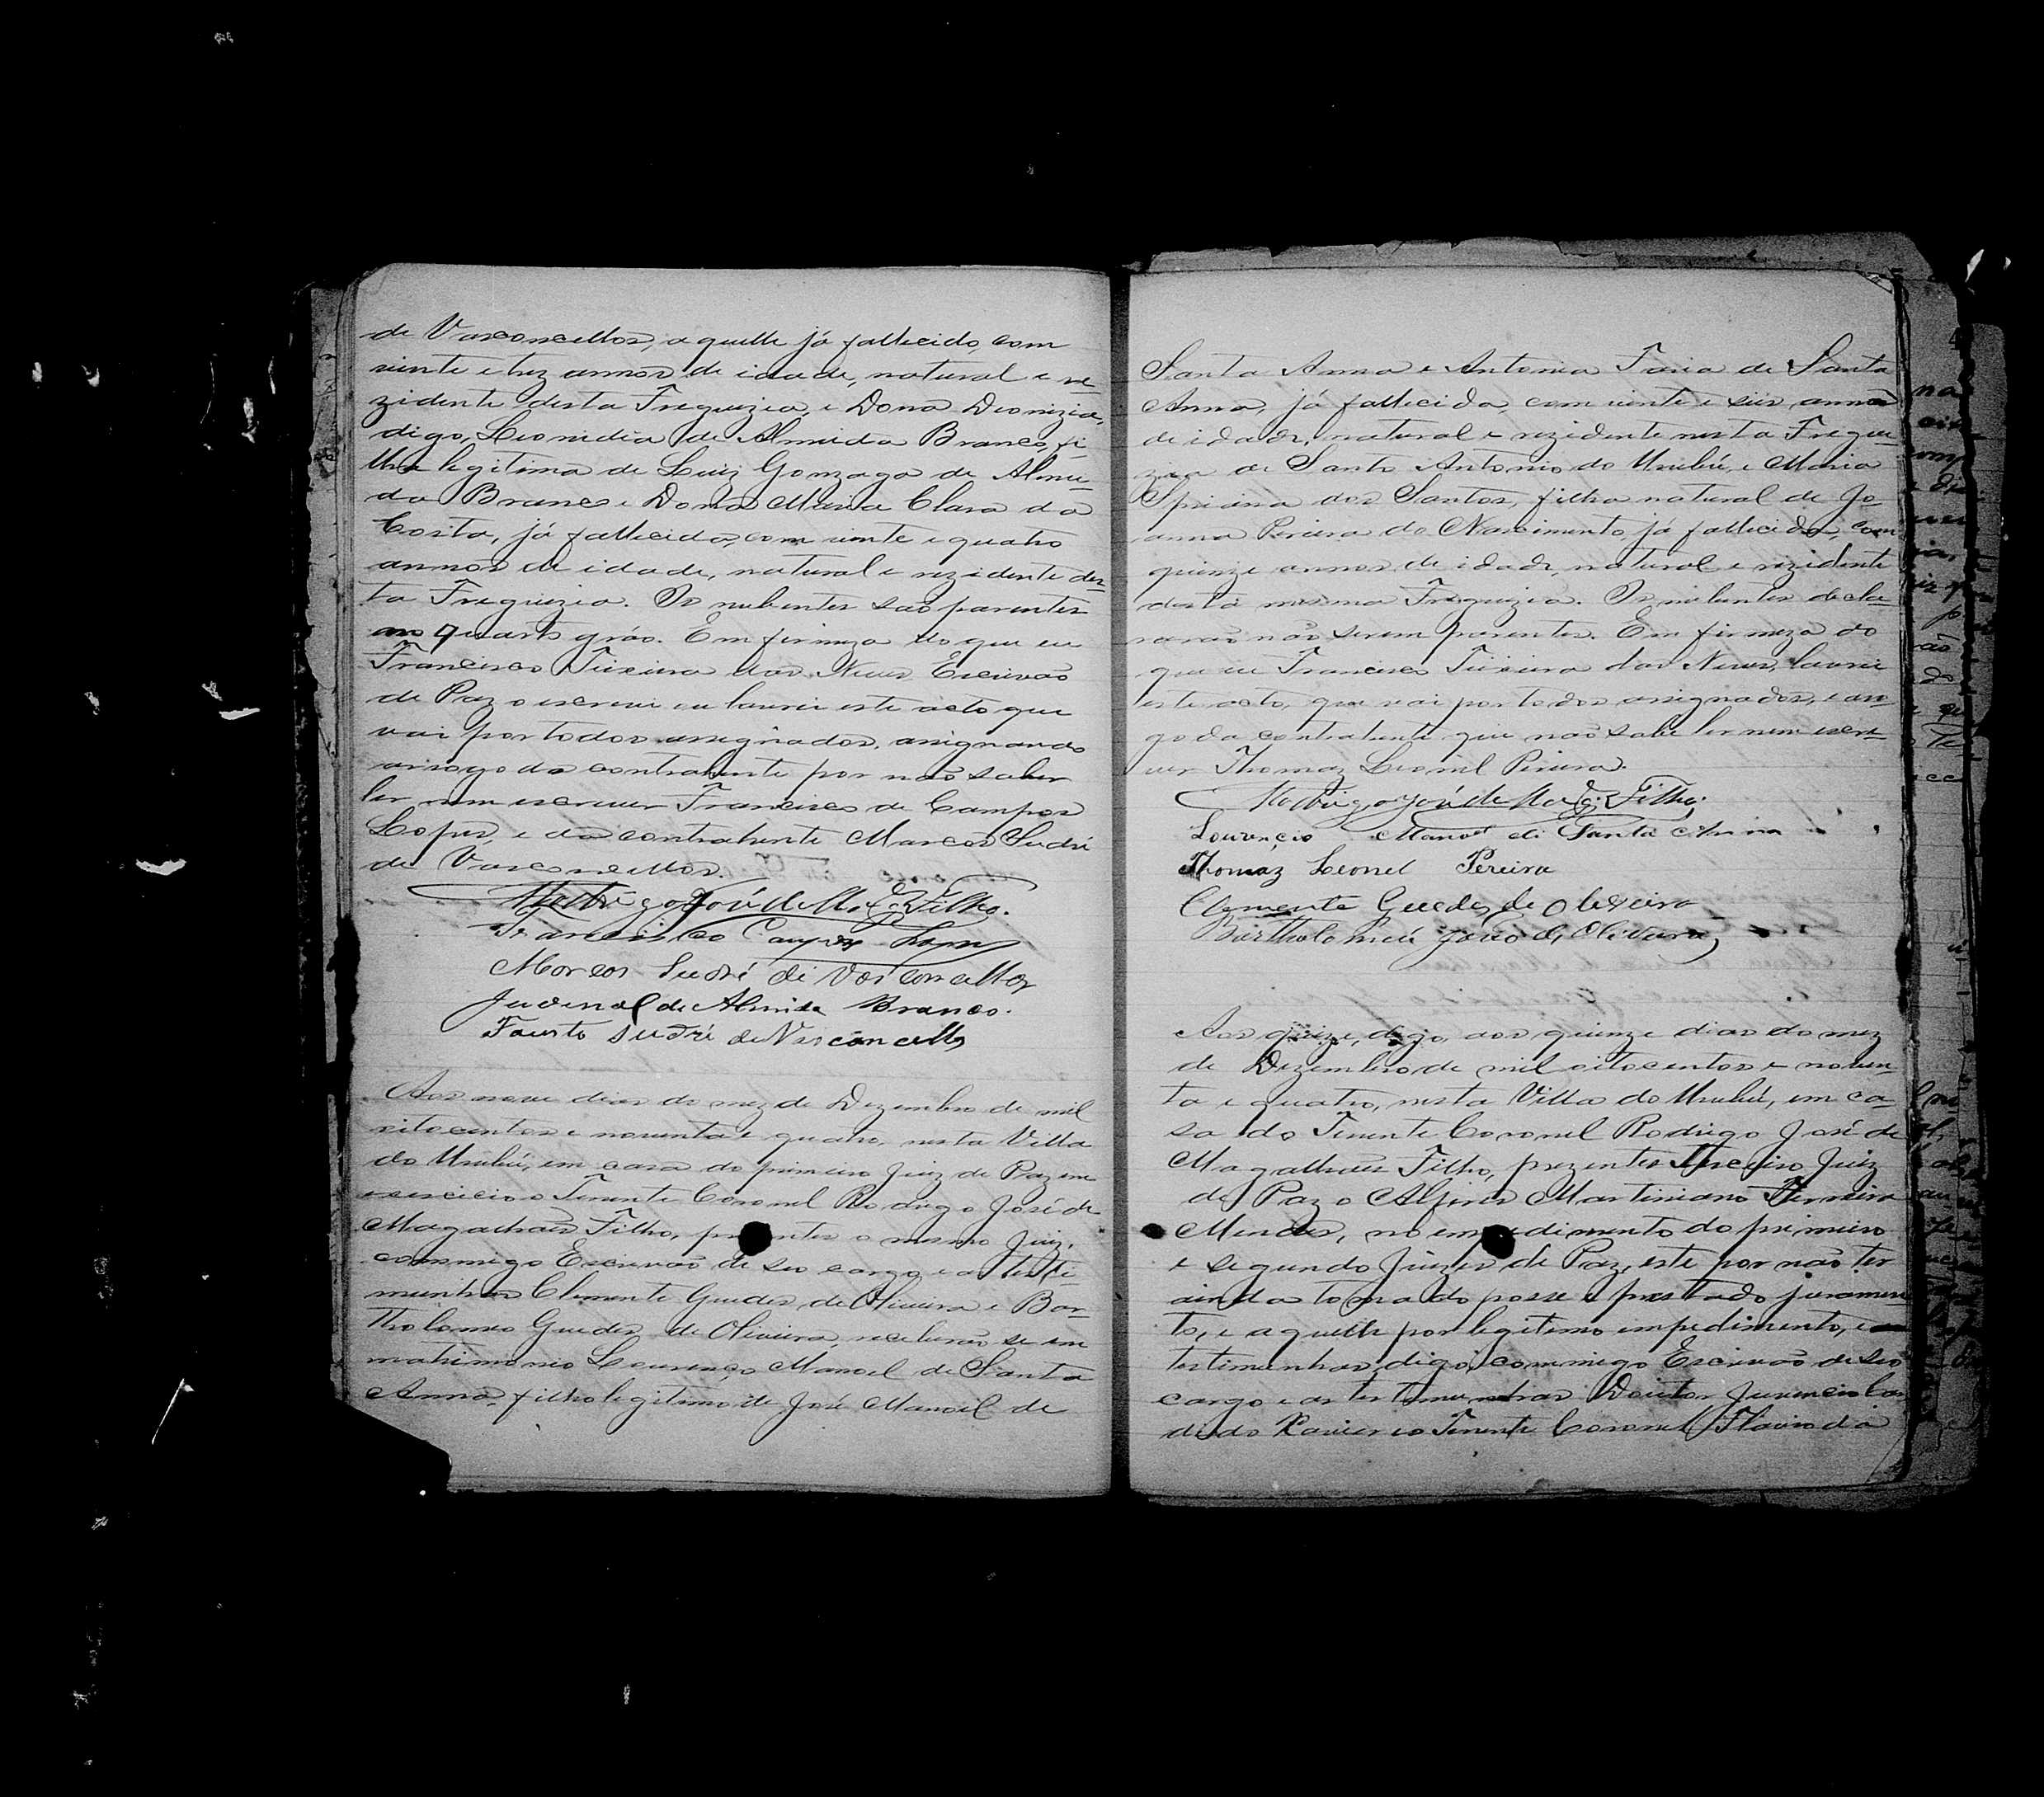 de Vasconcellos, a quelle já fallecido, com
vinte e trez annos de idade, natural e re-
zidente desta Freguizia, e Dona Dionizia,
digo, Leonidia de Almeida Branco, fi-
lha legitima de Luiz Gonzaga de Almei-
da Branco e Dona Maria Clara da
Costa, já fallecida, com vinte e quatro
annos de idade, natural e rezidente des-
ta Freguizia. Os nubentes são parentes
no quarto gráo. Em firmeza do que eu
Francisco Teixeira das Neves Escrivão
de Paz o escrevi eu lavrei este acto que
vai por todos assignados, assignando
arrogo da contrahente por não saber
ler nem escrever Francisco de Campos
Lopes, e do contrahente Marcos Sudré
de Vasconcellos.
Rodrigo José de Mag. Filho.
Francisco Campos Lopes
Marcos Sudré de Vasconcellos
Juvenal de Almeida Branco.
Fausto Sudré de Vasconcellos
Aos nove dias do mez de Dezembro de mil
oitocentos e noventa e quatro, nesta Villa
do Urubú, em casa do primeiro Juiz de Paz em
exercicio o Tenente Coronel Rodrigo José de
Magalhães Filho, prezentes o mesmo Juiz,
commigo Escrivão de seo cargo e as teste-
munhas Clemente Guedes de Oliveira e Bar-
tholomeo Guedes de Oliveira, receberão se em
matrimonio Lourenço Manoel de Santa
Anna, filho legitimo de José Manoel de
Santa Anna e Antonia Faria de Santa
Anna, já fallecida, com vinte e seis annos
de idade, natural e rezidente nesta Fregui-
zia de Santo Antonio do Urubú, e Maria
Spriana dos Santos, filha natural de Jo-
anna Pereira do Nascimento, já fallecida, com
quinze annos de idade, natural e rezidente
desta mesma Freguizia. Os nubentes decla-
rarão não serem parentes. Em firmeza do
que eu Francisco Teixeira das Neves, lavrei
este acto, que vai por todos assignados, e arro-
go da contrahente que não sabe ler nem escre-
ver Thomaz Leonel Pereira.
Rodrigo José de Mag. Filho.
Lourenço Manoel de Santa Anna
Thomaz Leonel Pereira
Clemente Guedes de Oliveira
Bartholomeu João de Oliveira
Aos quize, digo, aos quinze dias do mez
de Dezembro de mil oitocentos e noven-
ta e quatro, nesta Villa do Urubú, em ca-
sa do Tenente Coronel Rodrigo José de
Magalhães Filho, prezentes Terceiro Juiz
de Paz o Alferes Martiniano Ferreira
Mendes, no empedimento do primeiro
e segundo Juizes de Paz, este por não ter
ainda tomado posse e prestado juramen-
to, e aquelle por legitimo empedimento, e
testimunhas, digo, commigo Escrivão de seo
cargo e as testimunhas Doutor Juvencio Can-
dido Xavier e o Tenente Coronel Flavio da